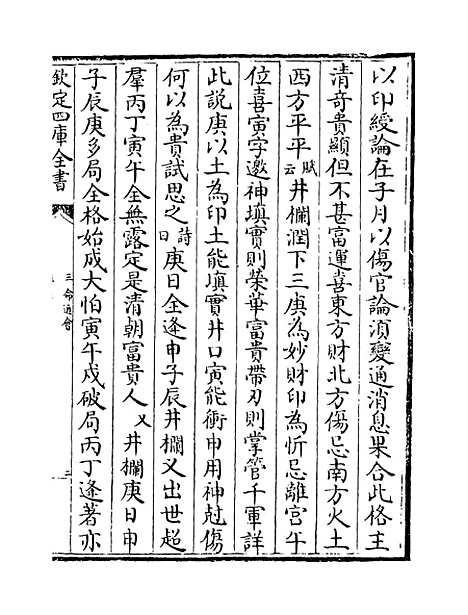 以印綬論在子月以傷官論須變通消息果合此格主
清奇貴顯但不甚富運喜東方財北方傷忌南方火土
西方平平賦云井欄潤下三庚為妙財印為忻忌離宮午
位喜寅字邀神填實則榮華富貴帶刃則掌管千軍詳
此説庚以土為印土能填實井口寅能衝申用神尅傷
何以為貴試思之詩曰庚日全逢申子辰井欄义出世超
羣丙丁寅午全無露定是清朝富貴人又井欄庚日申
子辰庚多局全格始成大怕寅午戍破局丙丁逢著亦
欽定四庫全書
三命通會